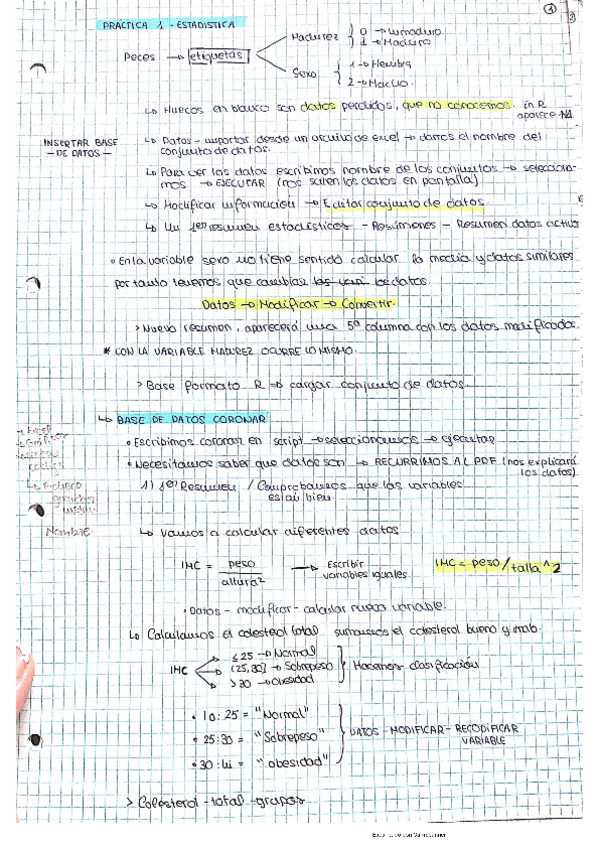 1
3
PRÁCTICA 1 - ESTADISTICA
Peces → etiquetas
Madurez
0 → Inmaduro
1 → Maduro
Sexo
1 → Hembra
2 → Macho.
↳ Huecos en blanco son datos perdidos, que no conocemos. en R aparece NA
INSERTAR BASE
— DE DATOS —
↳ Datos - importar desde un archivo de excel → darros el nombre del
conjunto de datos.
↳ Para ver los datos escribimos nombre de los conjuntos → seleccion-
mos → EJECUTAR (nos salen los datos en pantalla)
↳ Modificar información → Editar conjunto de datos
↳ Un 1er resumen estadísticos - Resúmenes - Resumen datos activo
• En la variable sexo no tiene sentido calcular la media y datos similares
por tanto tenemos que cambiar las vari los datos.
Datos → Modificar → Convertir.
> Nuevo resumen, aparecerá una 5ª columna con los datos modificados.
* CON LA VARIABLE MADUREZ OCURRE LO MISMO.
> Base formato R → cargar conjunto de datos.
↳ BASE DE DATOS CORONAR
• Escribimos coronar en script → seleccionamos → ejecutar
• Necesitamos saber que datos son → RECURRIMOS AL PDF (nos explicará
los datos).
1) 1er Resumen / Comprobamos que las variables
están bien
↳ Fichero
Nombre
↳ Vamos a calcular diferentes datos
IMC = peso / altura² → Escribir variables iguales IMC = peso / talla ^ 2
• Datos - modificar - calcular nueva variable.
↳ Calculamos el colesterol total sumamos el colesterol bueno y malo.
IMC
≤ 25 → Normal
(25,30] → Sobrepeso
> 30 → Obesidad
Hacemos clasificación
• 10:25 = "Normal"
• 25:30 = "Sobrepeso"
• 30:hi = "obesidad"
DATOS - MODIFICAR - RECODIFICAR
VARIABLE
> Colesterol - total - grupos